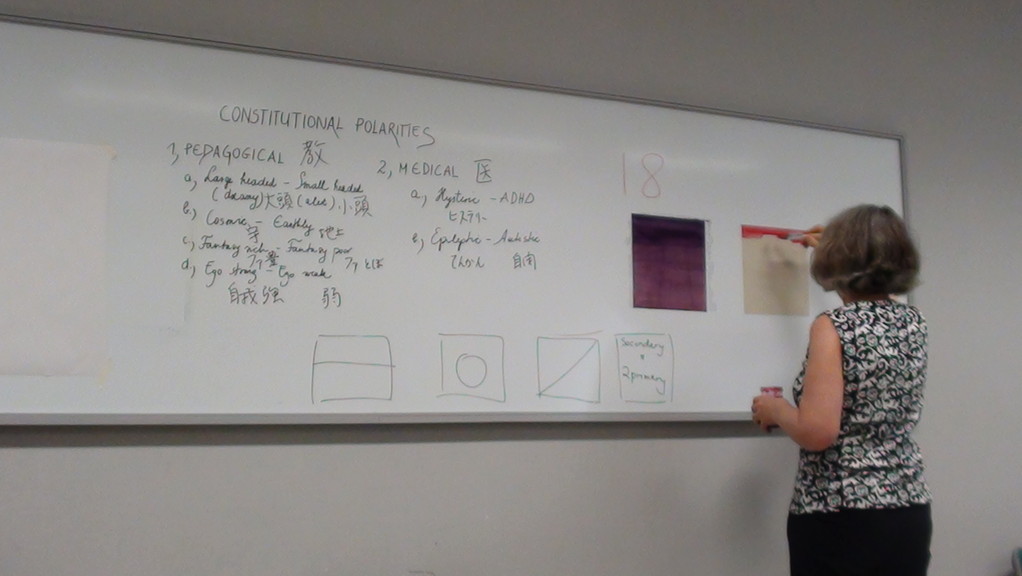 CONSTITUTIONAL POLARITIES
1, PEDAGOGICAL 教
a, Large headed - Small headed
(dreamy) 大頭 (alert) 小頭
b, Cosmic - Earthly 地上
c, Fantasy rich - Fantasy poor
d, Ego strong - Ego weak
自我 強 弱
2, MEDICAL 医
a, Hysteric - ADHD
ヒステリー
b, Epileptic - Autistic
てんかん 自閉
18
Secondary
2 primary